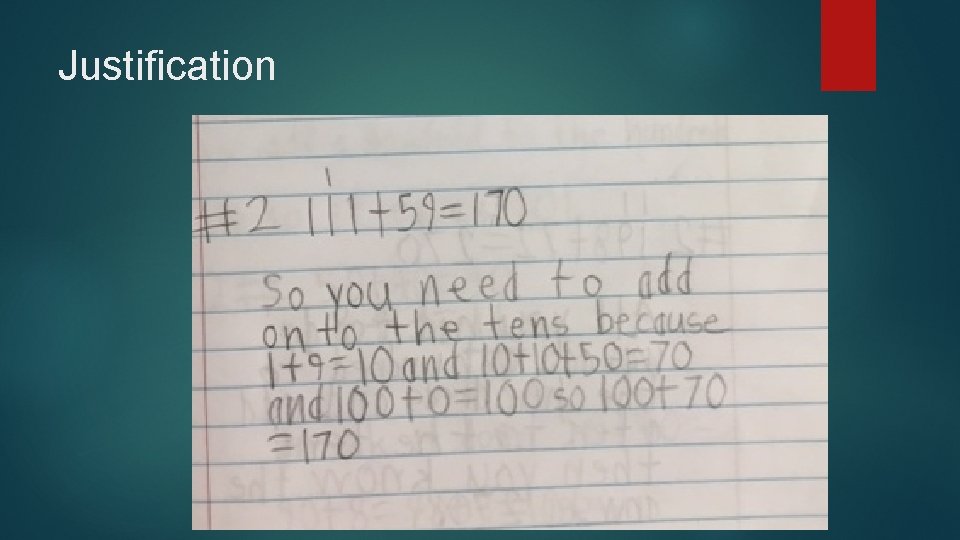 Justification
1
#2 111+59=170
So you need to add
on to the tens because
1+9=10 and 10+10+50=70
and 100+0=100 so 100+70
=170